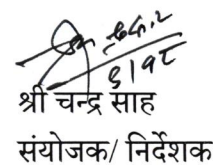 ६।१८
श्री चन्द्र साह
संयोजक/ निर्देशक